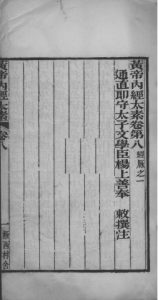 黃帝內經太素卷第八 經脈之一
通直郎守太子文學臣楊上善奉 敕撰注
黃帝內經太素 卷八